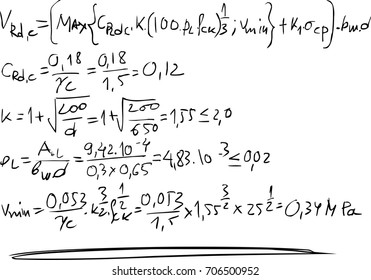 V_Rd,c = (MAX{C_Rd,c · K (100 · ρ_L f_ck)^1/3 ; V_min} + K_1 · σ_cp) · b_w · d
C_Rd,c = 0,18/γ_c = 0,18/1,5 = 0,12
K = 1 + √(200/d) = 1 + √(200/650) = 1,55 ≤ 2,0
ρ_L = A_L/(b_w · d) = 9,42 · 10^-4/(0,3 × 0,65) = 4,83 · 10^-3 ≤ 0,02
V_min = 0,053/γ_c · K^3/2 · f_ck^1/2 = 0,053/1,5 × 1,55^3/2 × 25^1/2 = 0,34 MPa
shutterstock.com · 706500952